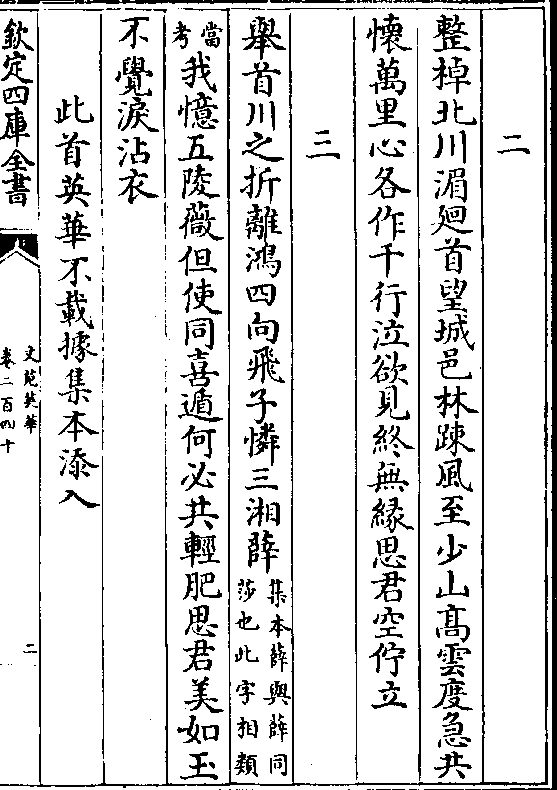 二
整棹北川湄廻首望城邑林踈風至少山髙雲度急共
懷萬里心各作千行泣欲見終無緣思君空佇立
三
舉首川之折離鴻四向飛子憐三湘薜集本薛與薜同莎也此字相類
當考我憶五陵薇但使同喜遁何必共輕肥思君美如玉
不覺淚沾衣
此首英華不載據集本添入
欽定四庫全書
文苑英華
卷二百四十
二